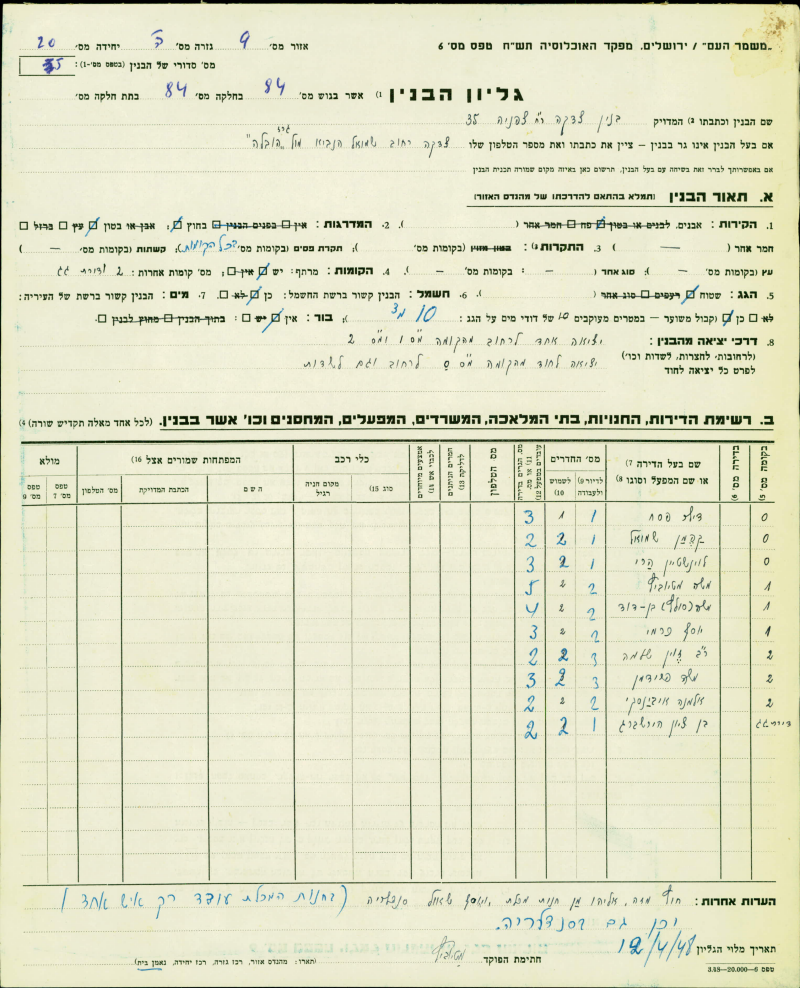 „משמר העם" / ירושלים. מפקד האוכלוסיה תש"ח טפס מס' 6
אזור מס' 9 גזרה מס' ה יחידה מס' 20
מס' סדורי של הבנין (בטפס מס' 1–): 35
גליון הבנין (1 אשר בגוש מס' 84 בחלקה מס' 84 בתת חלקה מס'
שם הבנין וכתבתו (2 המדויק בנין צדקה רח' צפניה 35
אם בעל הבנין אינו גר בבנין – ציין את כתבתו ואת מספר הטלפון שלו צדקה רחוב שמואל הנביא מול גרז' "הובלה"
אם באפשרותך לברר זאת בשיחה עם בעל הבנין, תרשום כאן באיזה מקום שמורה תכנית הבנין
א. תאור הבנין (תמלא בהתאם להדרכתו של מהנדס האזור)
1. הקירות: אבנים, לבנים או בטון ☑ פח ☐ חמר אחר ( ). 2. המדרגות: אין ☐ בפנים הבנין ☐ בחוץ ☑; אבן או בטון ☑ עץ ☐ ברזל ☐
חמר אחר ( — ) 3. התקרות (3: בטון מזוין (בקומות מס' ); תקרת פסים (בקומות מס' בכל הקומות); קשתות (בקומות מס' — )
עץ (בקומות מס' — ); סוג אחד ( — : בקומות מס' — ). 4. הקומות: מרתף: יש ☑ אין ☐; מס' קומות אחרות: 2 ודירת גג
5. הגג: שטוח ☑ רעפים ☐ סוג אחר ( ). 6. חשמל: הבנין קשור ברשת החשמל: כן ☑ לא ☐. 7. מים: הבנין קשור ברשת של העיריה:
לא ☐ כן ☑ (קבול משוער – במטרים מעוקבים של דודי מים על הגג: 10 מ3); בור: אין ☑ יש ☐: בתוך הבנין ☐ מחוץ לבנין ☐.
8. דרכי יציאה מהבנין: יציאה אחד לרחוב מהקומה מס 1 ומס 2
(לרחובות, לחצרות, לשדות וכו') יציאה לחוד מהקומה מס 0 לרחוב וגם לשדות
לפרט כל יציאה לחוד
ב. רשימת הדירות, החנויות, בתי המלאכה, המשרדים, המפעלים, המחסנים וכו' אשר בבנין. (לכל אחד מאלה תקדיש שורה) (4
בקומה מס' (5 בדירה מס' (6 שם בעל הדירה (7 או שם המפעל וסוגו (8 מס' החדרים לדיור (9 ולעבודה לשמוש (10 מס. הגרים בדירה (11 או מס. עובדים במפעל (12 מס' הטלפון חמרים הניתנים לדליקה (13 אמצעים מיוחדים לכבוי אש (14 כלי רכב סוג (15 מקום חניה רגיל המפתחות שמורים אצל (16 השם הכתבת המדויקת מס' הטלפון מולא טפס מס' 7 טפס מס' 9
0 פסח 1 1 3
0 שמואל 1 2 2
0 לוינשטיין הרי 1 2 3
1 משה 2 2 5
1 משה בן-דוד 2 2 4
1 יוסף פרמי 2 2 3
2 3 2 2
2 משה פרידמן 3 2 3
2 אלמנה 2 2 2
דירת גג בן ציון הירשברג 1 2 2
הערות אחרות: אליהו חנות מכלת, שאול סנדלריה (בחנות המכלת עובד רק איש אחד)
וכן גם בסנדלריה.
תאריך מלוי הגליון 12/4/48 חתימת הפוקד (תארו: מהנדס אזור, רכז גזרה, רכז יחידה, נאמן בית)
טפס 6–20.000–3.48